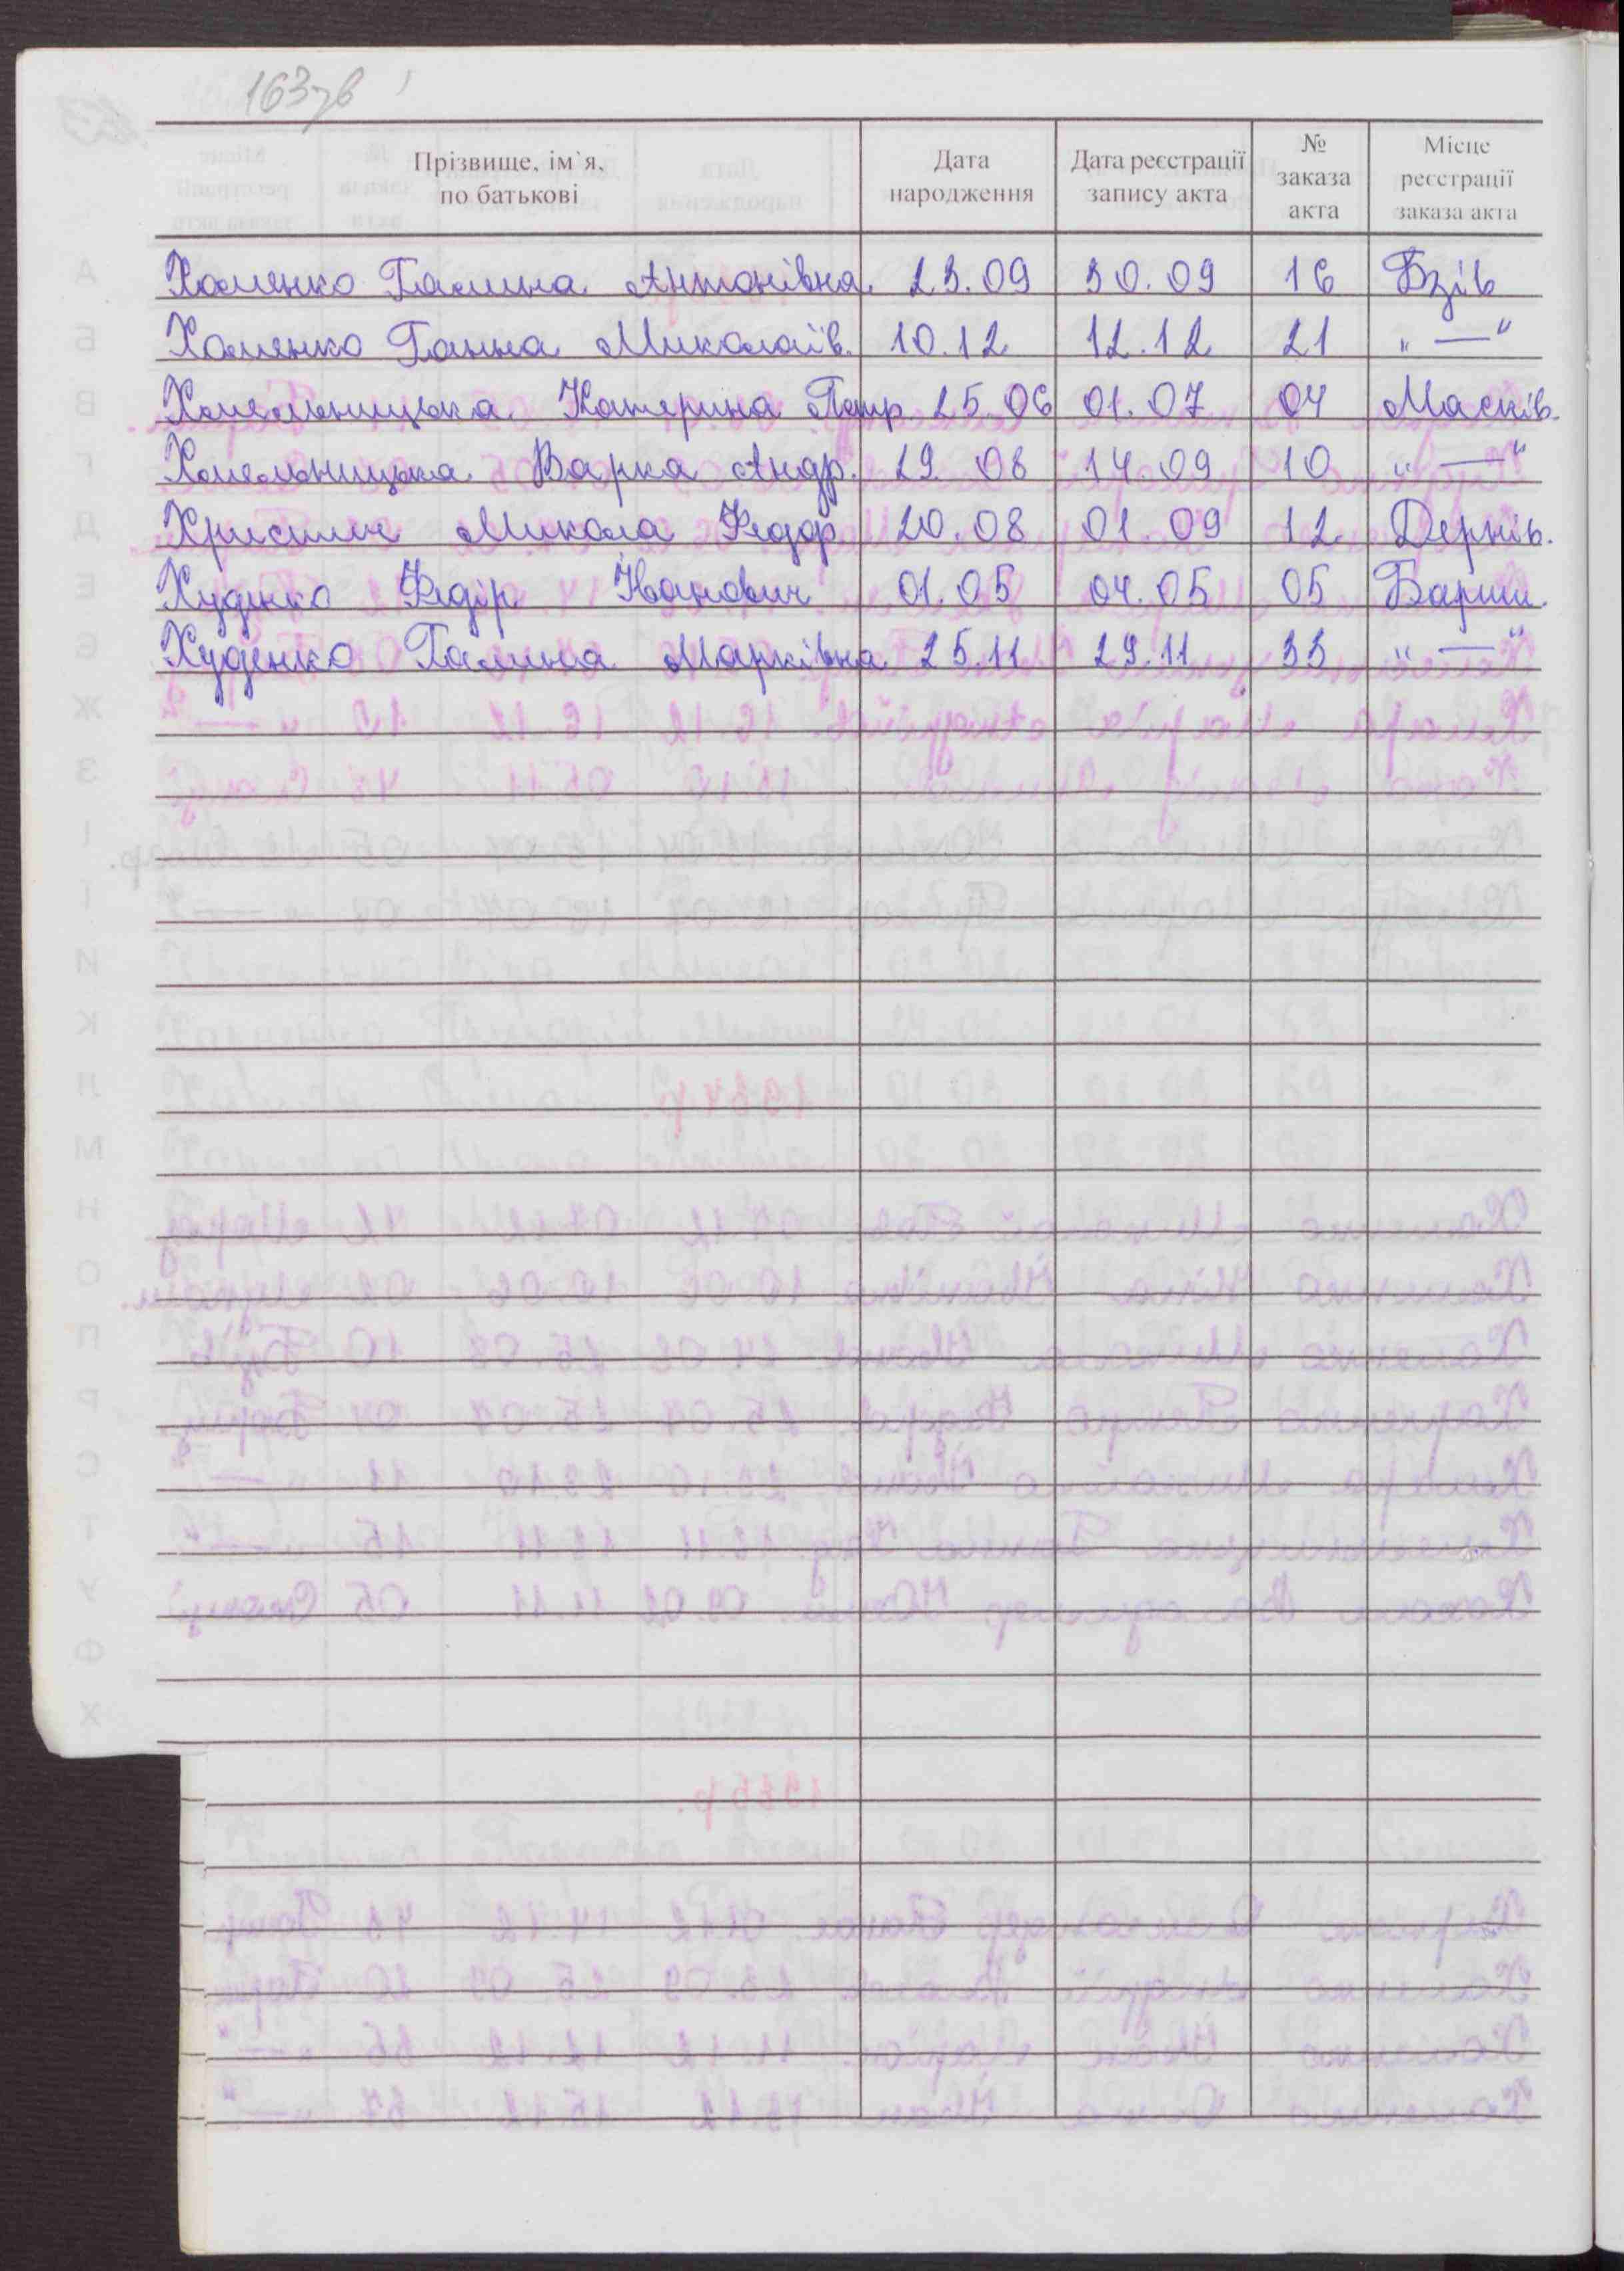 163зв
Прізвище, ім`я, по батькові Дата народження Дата реєстрації запису акта № заказа акта Місце реєстрації заказа акта
Хоменко Галина Антонівна 23.09 30.09 16 Бзів
Хоменко Ганна Миколаїв. 10.12 12.12 21 " — "
Хмельницька Катерина Петр 25.06 01.07 04 Масків.
Хмельницька Варка Андр. 29.08 14.09 10 " — "
Микола Федор 20.08 01.09 12 Дернів.
Худенко Федір Іванович 01.05 04.05 05 Бариш.
Худенко Галина Марківна 25.11 29.11 33 " — "